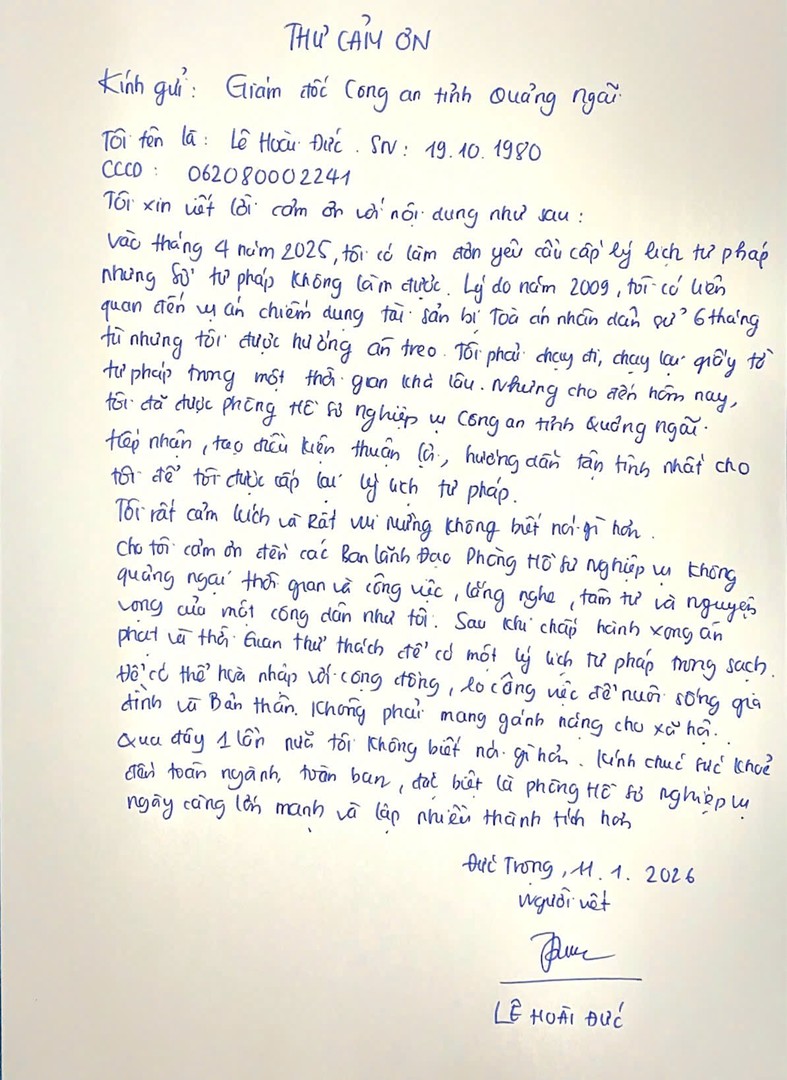 THƯ CẢM ƠN
Kính gửi: Giám đốc Công an tỉnh Quảng Ngãi
Tôi tên là: Lê Hoài Đức. SN: 19.10.1980
CCCD: 062080002241
Tôi xin viết lời cảm ơn với nội dung như sau:
Vào tháng 4 năm 2025, tôi có làm đơn yêu cầu cấp lý lịch tư pháp
nhưng Sở tư pháp không làm được. Lý do năm 2009, tôi có liên
quan đến vụ án chiếm dụng tài sản bị Toà án nhân dân xử 6 tháng
tù nhưng tôi được hưởng án treo. Tôi phải chạy đi, chạy lại giấy tờ
tư pháp trong một thời gian khá lâu. Nhưng cho đến hôm nay,
tôi đã được phòng Hồ sơ nghiệp vụ Công an tỉnh Quảng ngãi.
tiếp nhận, tạo điều kiện thuận lợi, hướng dẫn tận tình nhất cho
tôi để tôi được cấp lại lý lịch tư pháp.
Tôi rất cảm kích và Rất vui mừng không biết nói gì hơn.
Cho tôi cảm ơn đến các Ban Lãnh Đạo Phòng Hồ sơ nghiệp vụ không
quảng ngại thời gian và công việc, lắng nghe, tâm tư và nguyện
vọng của một công dân như tôi. Sau khi chấp hành xong án
phạt và thời Gian thử thách để có một lý lịch tư pháp trong sạch.
Để có thể hoà nhập với cộng đồng, lo công việc để nuôi sống gia
đình và Bản thân. Không phải mang gánh nặng cho xã hội.
Qua đây 1 lần nữa tôi không biết nói gì hơn. Kính chúc sức khoẻ
đến toàn ngành, toàn ban, đặc biệt là phòng Hồ sơ nghiệp vụ
ngày càng lớn mạnh và lập nhiều thành tích hơn
Đức Trọng, 11.1.2026
Người viết
LÊ HOÀI ĐỨC